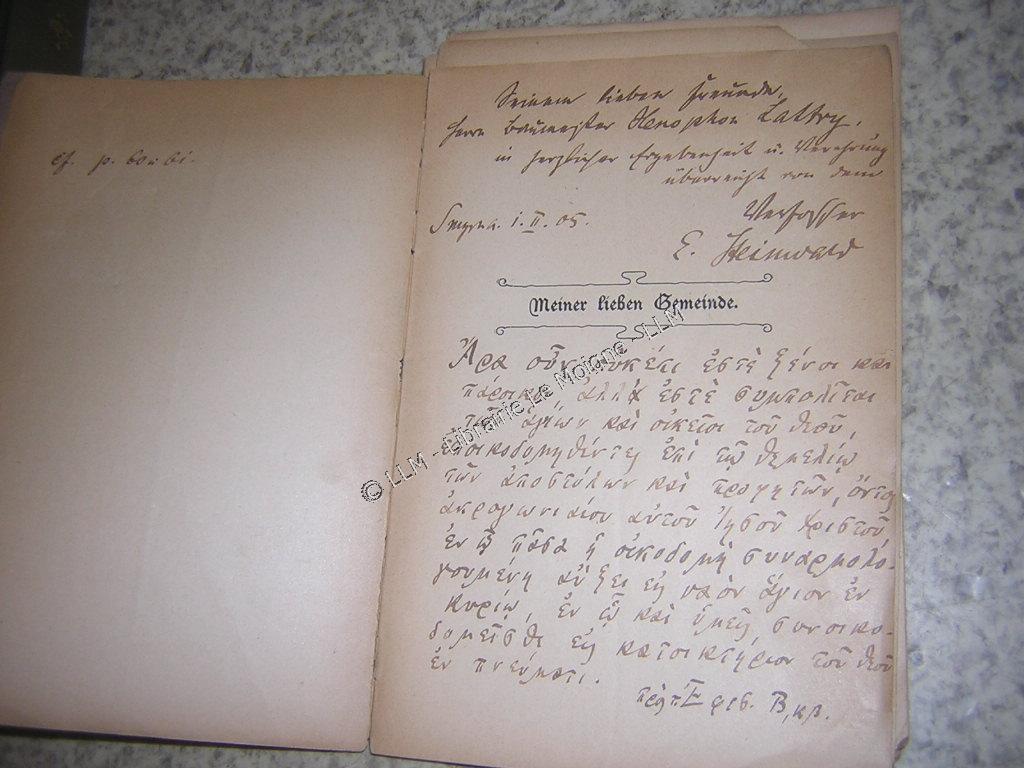 cf. p. 60 u 61.
Seinem lieben Freunde,
Herrn Baumeister Xenophon Lattry,
in herzlicher Ergebenheit u. Verehrung
überreicht von dem
Verfasser
Smyrna. 1. II. 05.
E. Steinwald
Meiner lieben Gemeinde.
Ἄρα οὖν οὐκέτι ἐστὲ ξένοι καὶ
πάροικοι ἀλλὰ ἐστὲ συμπολῖται
τῶν ἁγίων καὶ οἰκεῖοι τοῦ θεοῦ,
ἐποικοδομηθέντες ἐπὶ τῷ θεμελίῳ
τῶν ἀποστόλων καὶ προφητῶν, ὄντος
ἀκρογωνιαίου αὐτοῦ Ἰησοῦ Χριστοῦ
ἐν ᾧ πᾶσα ἡ οἰκοδομὴ συναρμολο-
γουμένη αὔξει εἰς ναὸν ἅγιον ἐν
κυρίῳ, ἐν ᾧ καὶ ὑμεῖς συνοικο-
δομεῖσθε εἰς κατοικητήριον τοῦ θεοῦ
ἐν πνεύματι.
πρὸς Ἐφεσ. Β, κβ.
© LLM - Librairie Le Moigne - LLM